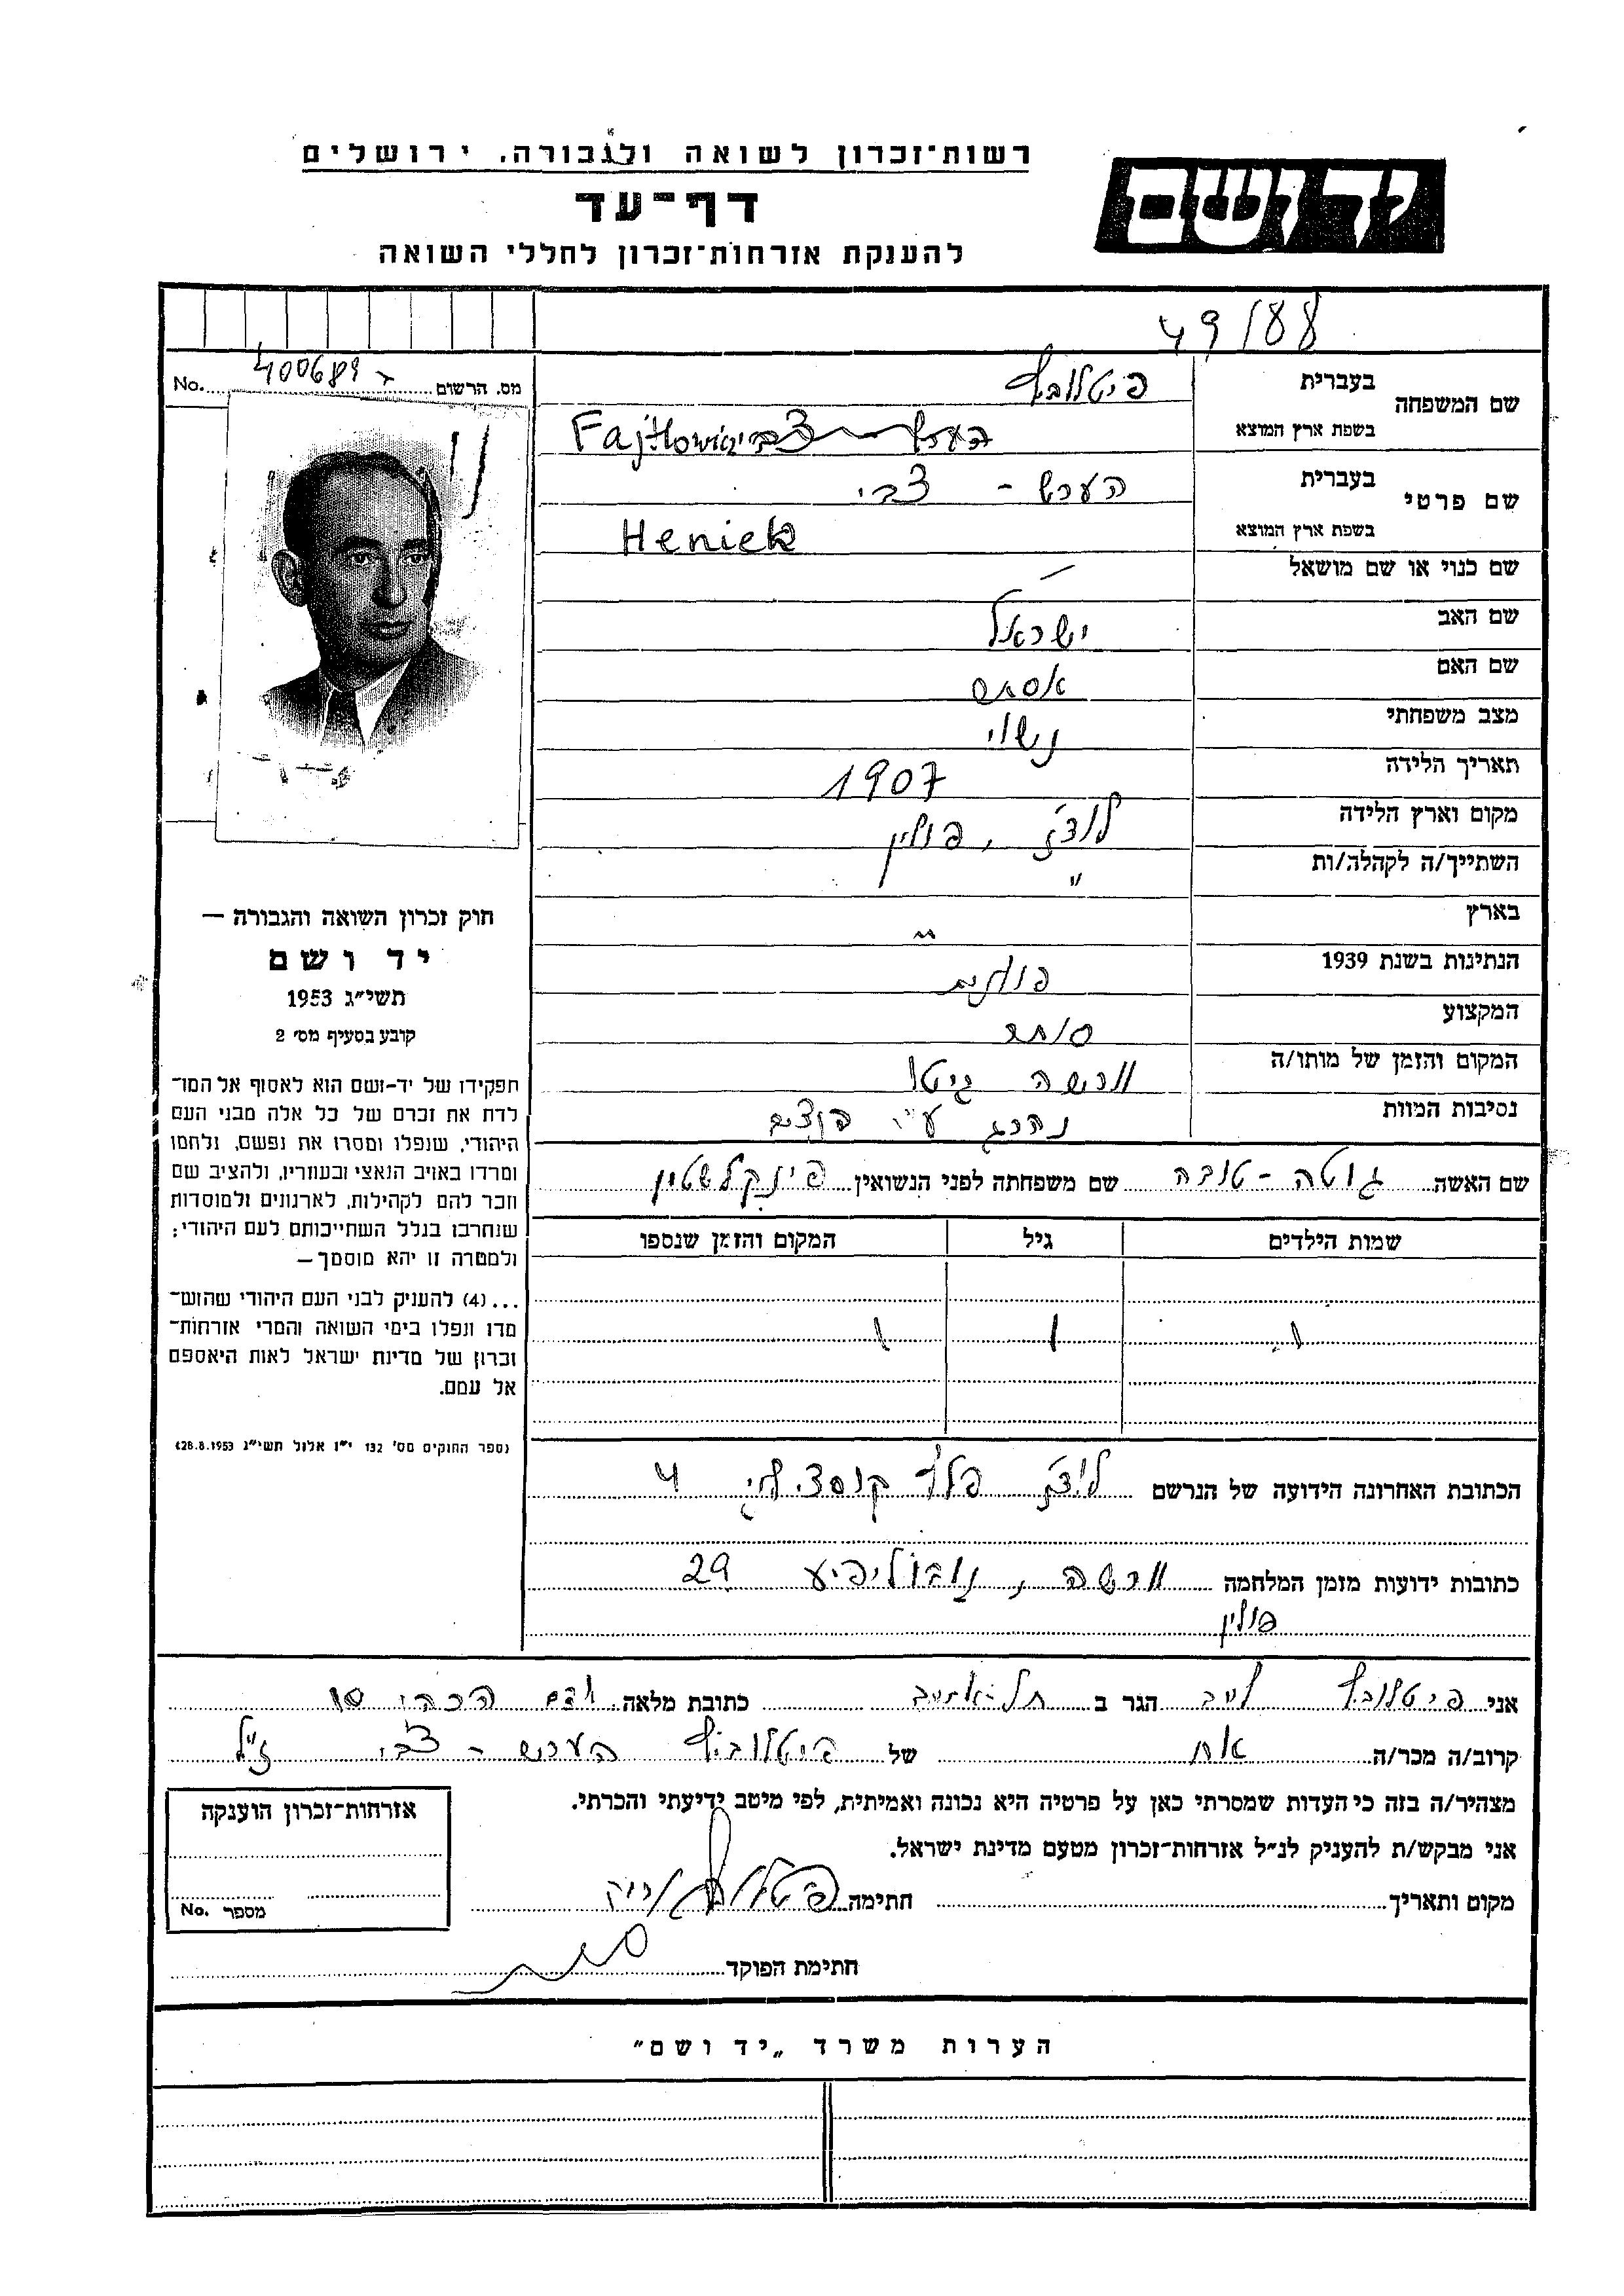 רשות־זכרון לשואה ולגבורה, ירושלים
יד ושם
דף־עד
להענקת אזרחות־זכרון לחללי השואה
49/88
מס. הרשום 400689 No.
שם המשפחה
בעברית פיטלוביץ
בשפת ארץ המוצא Fajtłowicz
שם פרטי
בעברית הענך - צבי
בשפת ארץ המוצא Heniek
שם כנוי או שם מושאל —
שם האב ישראל
שם האם אסתר
מצב משפחתי נשוי
תאריך הלידה 1907
מקום וארץ הלידה לודז', פולין
השתייך/ה לקהלה/ות "
בארץ "
הנתינות בשנת 1939 פולנית
המקצוע סוחר
המקום והזמן של מותו/ה וורשה גיטו
נסיבות המוות נהרג ע"י
שם האשה גוטה - טובה שם משפחתה לפני הנשואין פינקלשטין
שמות הילדים גיל המקום והזמן שנספו
חוק זכרון השואה והגבורה —
יד ושם
תשי"ג 1953
קובע בסעיף מס' 2
תפקידו של יד-ושם הוא לאסוף אל המו־
לדת את זכרם של כל אלה מבני העם
היהודי, שנפלו ומסרו את נפשם, נלחמו
ומרדו באויב הנאצי ובעוזריו, ולהציב שם
וזכר להם לקהילות, לארגונים ולמוסדות
שנחרבו בגלל השתייכותם לעם היהודי;
ולמטרה זו יהא מוסמך —
...(4) להעניק לבני העם היהודי שהוש־
מדו ונפלו בימי השואה והמרי אזרחות־
זכרון של מדינת ישראל לאות היאספם
אל עמם.
(ספר החוקים מס' 132 י"ז אלול תשי"ג 28.8.1953)
הכתובת האחרונה הידועה של הנרשם לודז' פלץ 4
כתובות ידועות מזמן המלחמה וורשה, נובוליפיע 29
פולין
אני פיטלוביץ לייב הגר ב תל-אביב כתובת מלאה 10
קרוב/ה מכר/ה אח של פיטלוביץ הענך - צבי ז"ל
מצהיר/ה בזה כי העדות שמסרתי כאן על פרטיה היא נכונה ואמיתית, לפי מיטב ידיעתי והכרתי.
אני מבקש/ת להעניק לנ"ל אזרחות־זכרון מטעם מדינת ישראל.
מקום ותאריך חתימה
חתימת הפוקד
אזרחות־זכרון הוענקה
מספר No.
הערות משרד "יד ושם"